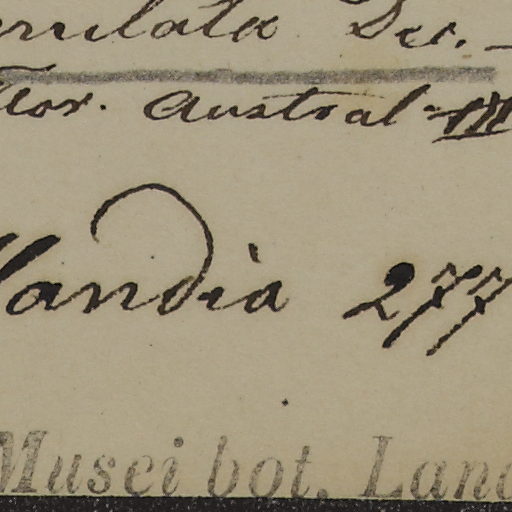 errulata Dec. -
Flor. Austral. III
llandia 277
Musei bot. Land